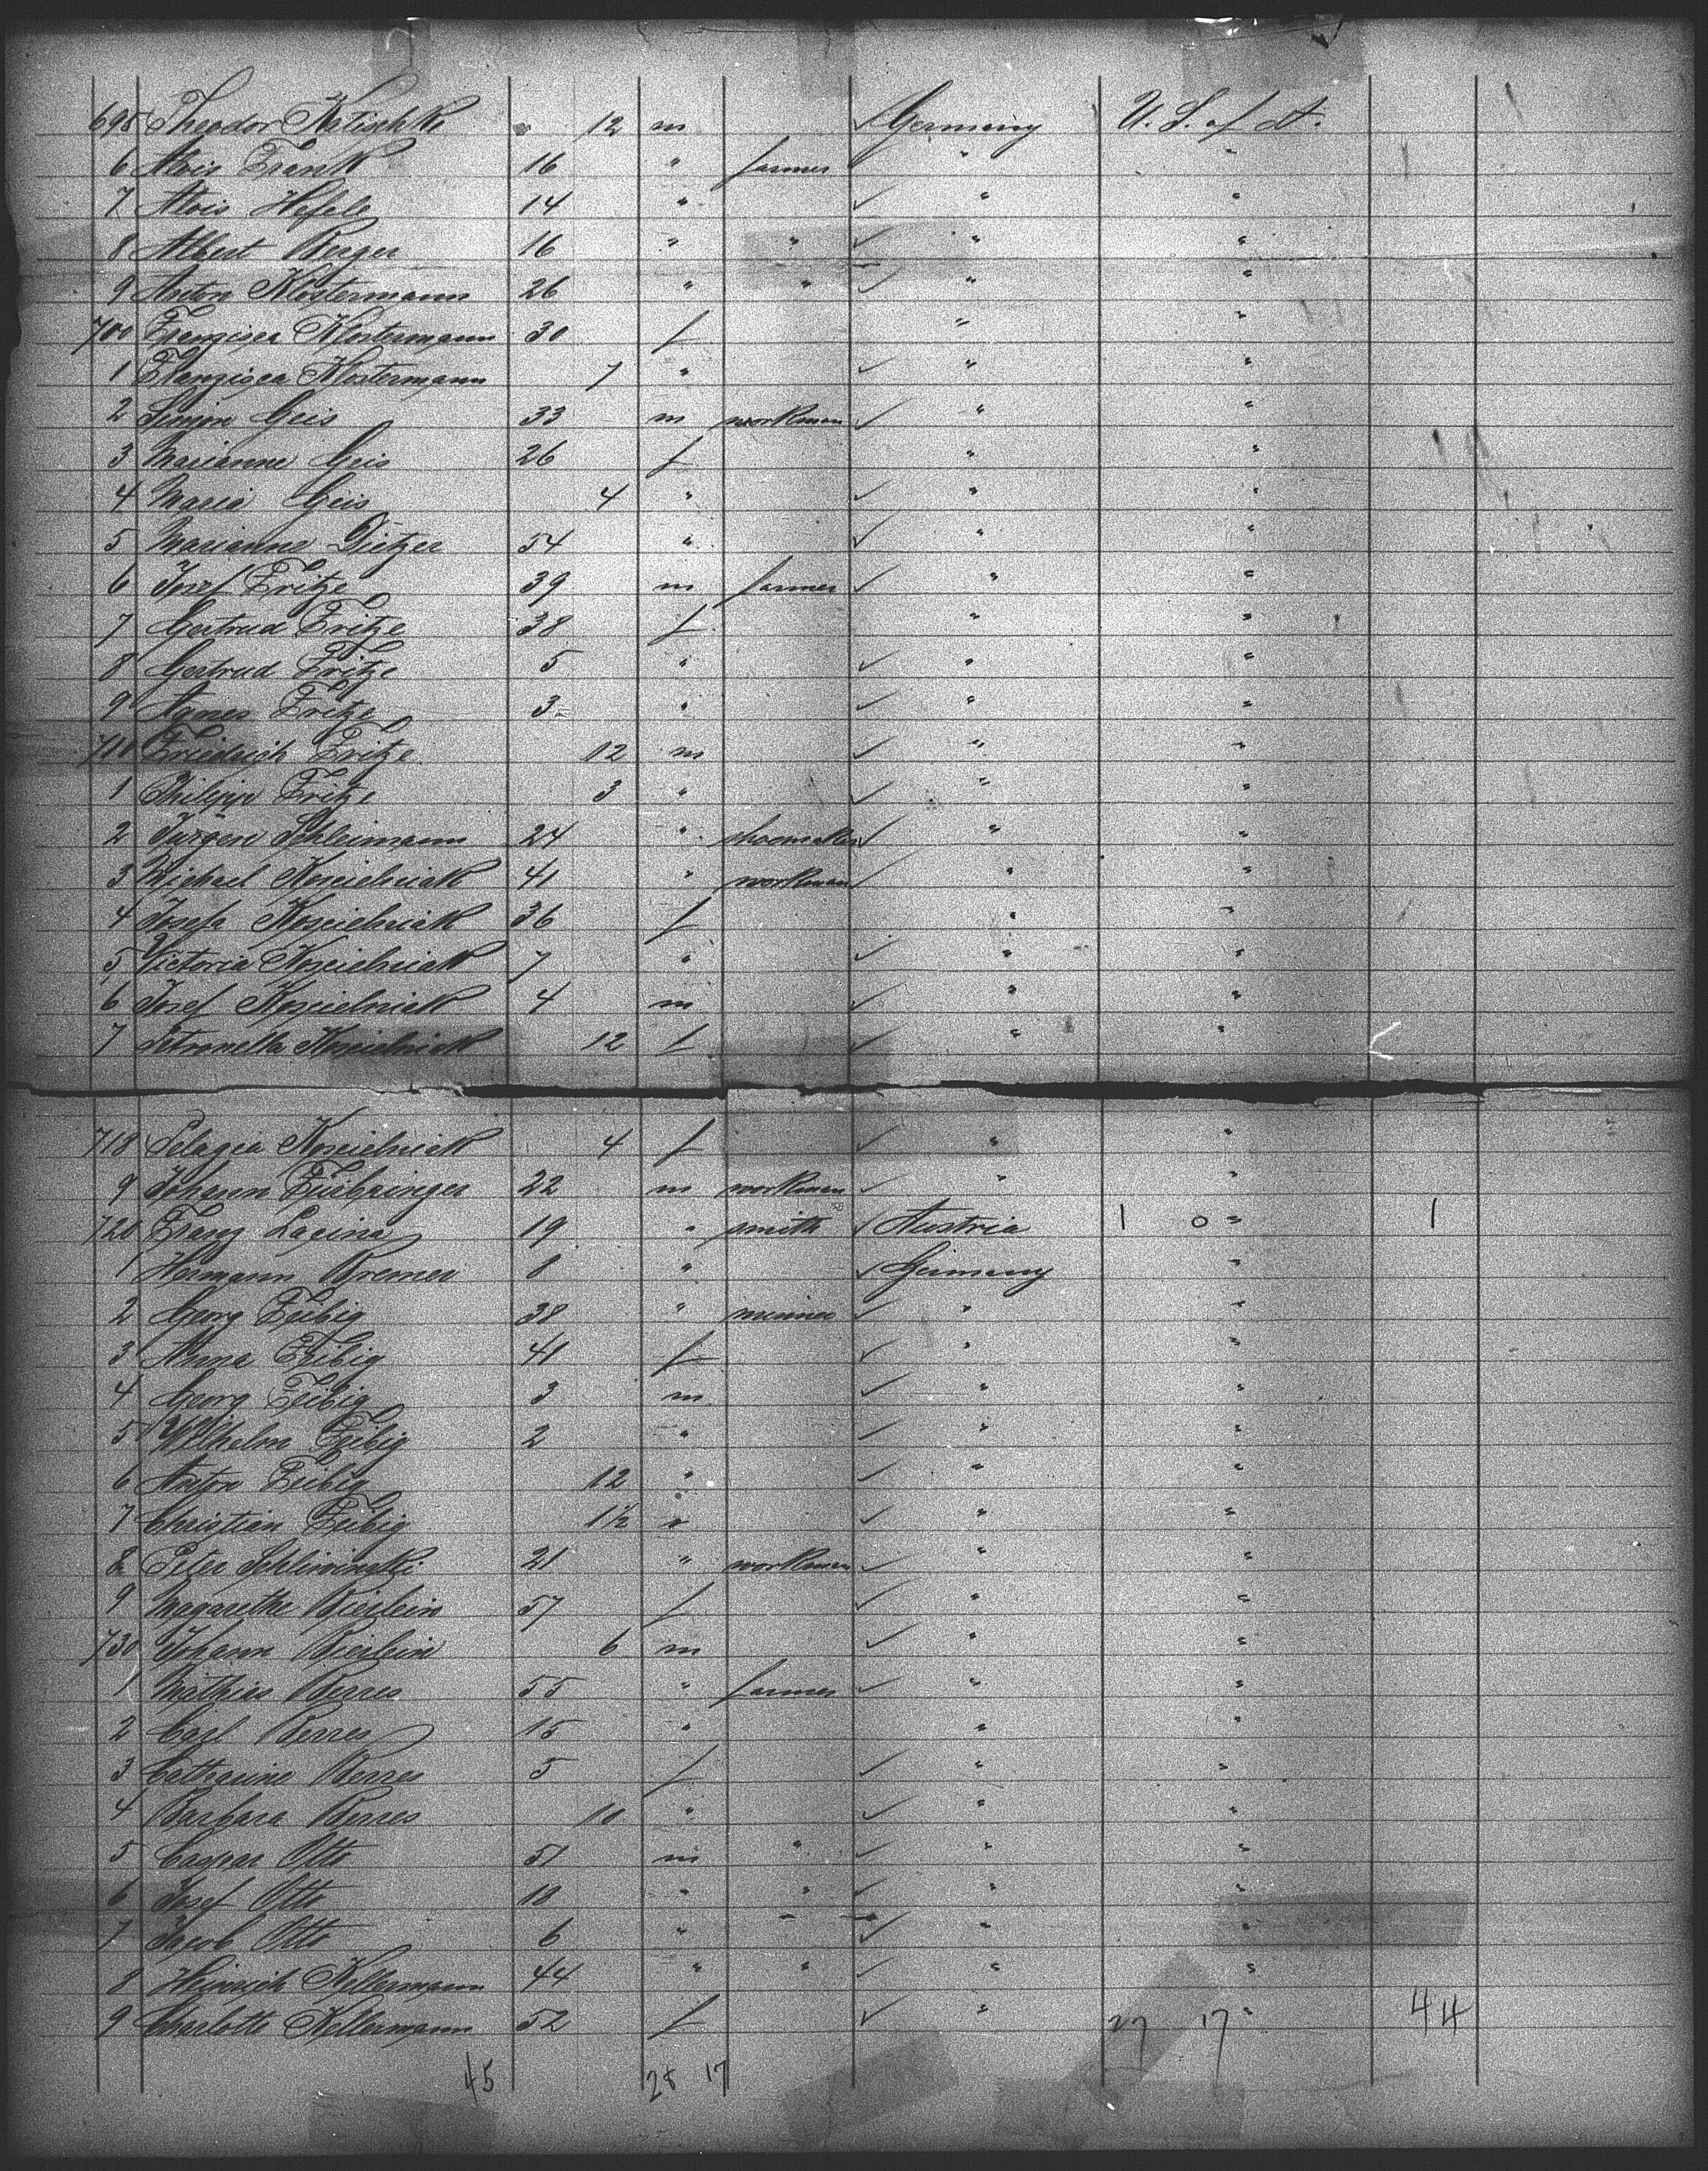 695 Theodor Katischke 12 m ✓ Germany U. S. of A.
6 Alois Frank 16 " farmer ✓ " "
7 Alois Hefele 14 " ✓ " "
8 Albert Berger 16 " " ✓ " "
9 Anton Klostermann 26 " " ✓ " "
700 Franzisca Klostermann 30 f " "
1 Franzisca Klostermann 7 " ✓ " "
2 Simon Geis 33 m workman ✓ " "
3 Marianne Geis 26 f " "
4 Maria Geis 4 " ✓ " "
5 Marianne Dietzer 54 " ✓ " "
6 Josef Fritze 39 m farmer ✓ " "
7 Gertrud Fritze 38 f " "
8 Gertrud Fritze 5 " ✓ " "
9 Agnes Fritze 3 " ✓ " "
710 Friedrich Fritze 12 m ✓ " "
1 Philipp Fritze 3 " ✓ " "
2 Jürgen Schleimann 24 " shoemaker ✓ " "
3 Michael Koscielniak 41 " workman ✓ " "
4 Josefa Koscielniak 36 f " "
5 Victoria Koscielniak 7 " ✓ " "
6 Josef Koscielniak 4 m ✓ " "
7 Petronella Koscielniak 12 f ✓ " "
718 Pelagia Koscielniak 4 f ✓ " "
9 Johann 22 m workman ✓ " "
720 Franz Lacina 19 " smith ✓ Austria 1 0 " 1
1 Hermann Bremer 8 " ✓ Germany "
2 Georg Feibig 38 " ✓ " "
3 Anna Feibig 41 f ✓ " "
4 Georg Feibig 3 m ✓ " "
5 Wilhelm Feibig 2 " ✓ " "
6 Anton Feibig 12 " ✓ " "
7 Christian Feibig 1½ " ✓ " "
8 Peter Schliminski 21 " workman ✓ " "
9 Magarethe Bierlein 57 f ✓ " "
730 Johann Bierlein 6 m ✓ " "
1 Mathias Berres 55 " farmer ✓ " "
2 Carl Berres 15 " " "
3 Catharine Berres 5 f ✓ " "
4 Barbara Berres 10 " ✓ " "
5 Caspar Otto 51 m " ✓ " "
6 Josef Otto 10 " " ✓ " "
7 Jacob Otto 6 " ✓ " "
8 Heinrich Kellermann 44 " " ✓ " "
9 Charlotte Kellermann 52 f ✓ " 27 17 " 44
45 28 17